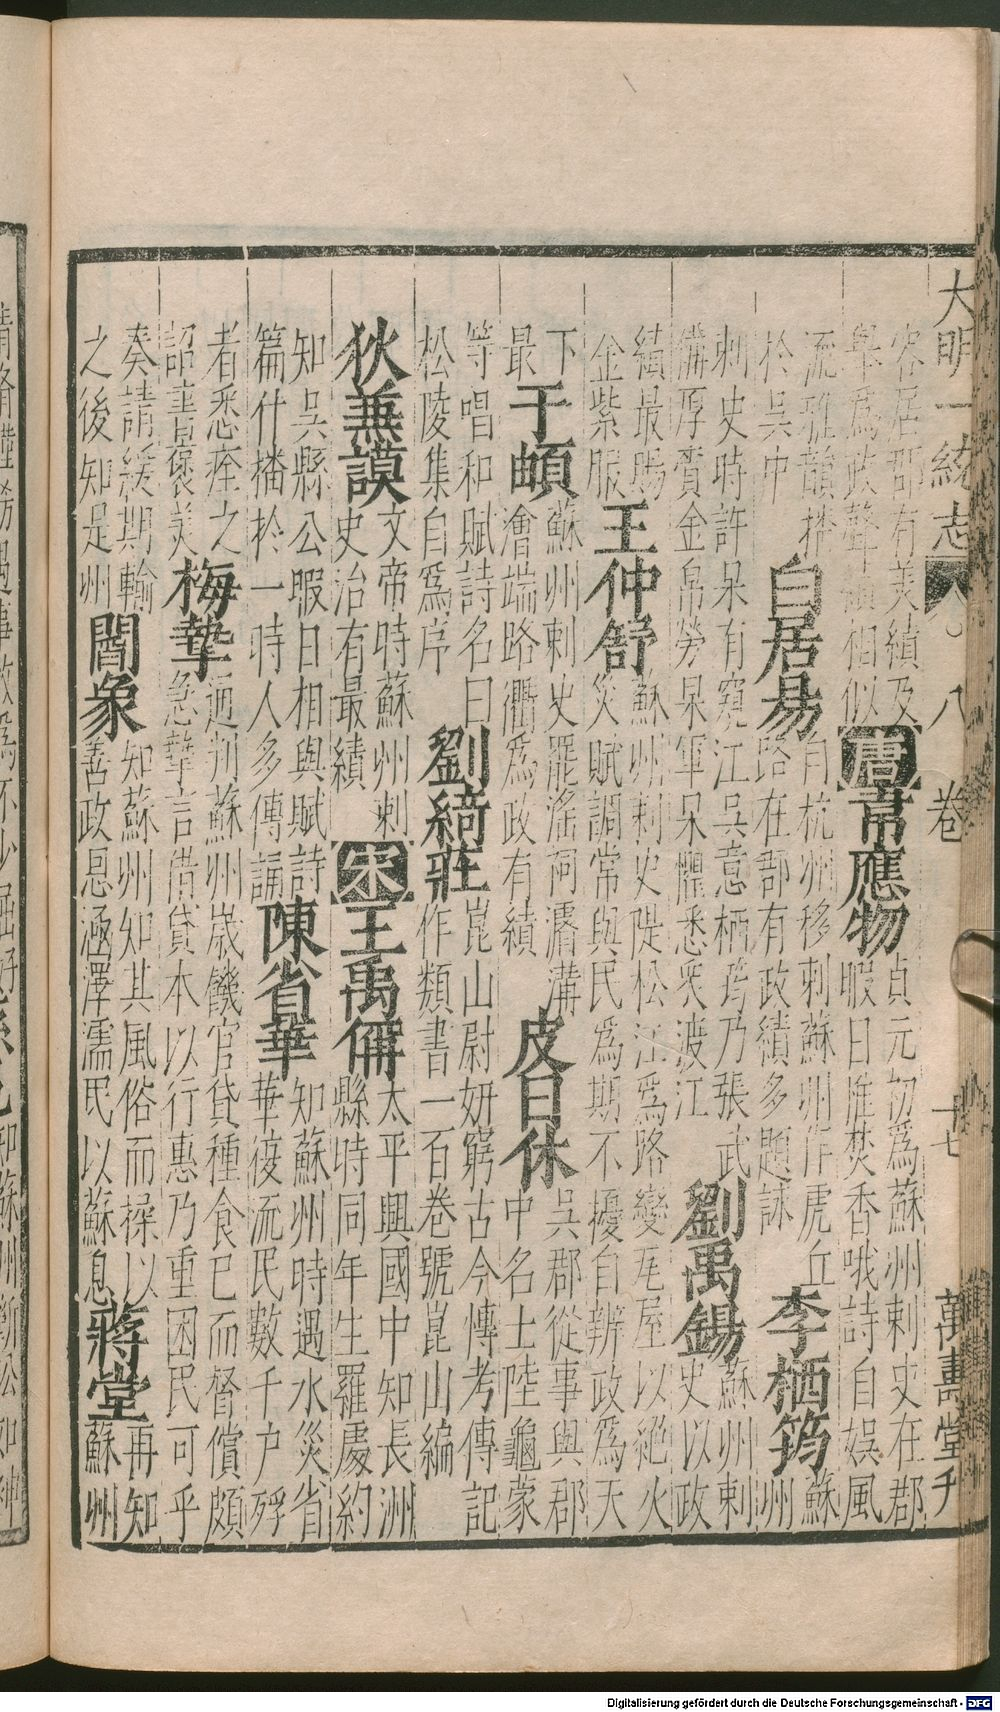 大明一統志 八卷 十七 萬壽堂刋
客居郡有美績及唐韋應物貞元初爲蘇州刺史在郡
與爲政聲 相似 暇日惟焚香哦詩自娱風
流雅韻播 白居易自杭州移刺蘇州作虎丘 李栖筠蘇
於吳中 路在郡有政績多題詠 州
刺史時許杲有窺江吳意栖筠乃張武 劉禹錫蘇州刺
備厚賫金帛勞杲軍杲懼悉衆渡江 史以政
績最賜 王仲舒蘇州刺史隄松江爲路變𤬦屋以絕火
金紫服 災賦調常與民爲期不擾自辦政爲天
下 于頔蘇州刺史罷滛祠濬溝 皮日休吳郡從事與郡
最 澮端路衢爲政有績 中名士陸龜蒙
等唱和賦詩名曰 劉綺莊崑山尉妍窮古今慱考傳記
松陵集自爲序 作類書一百卷號崑山編
狄兼謨文帝時蘇州刺 宋王禹偁太平興國中知長洲
史治有最績 縣時同年生羅處約
知吳縣公暇日相與賦詩 陳省華知蘇州時遇水災省
篇什播於一時人多傳誦 華復流民數千户殍
者悉瘞之 梅摯通判蘇州歲饑官貸種食已而督償頗
詔書褒美 急摯言借貸本以行惠乃重困民可乎
奏請緩期輸 閻象知蘇州知其風俗而操以 蔣堂再知
之後知是州 善政恩涵澤濡民以蘇息 蘇州
Digitalisierung gefördert durch die Deutsche Forschungsgemeinschaft - DFG